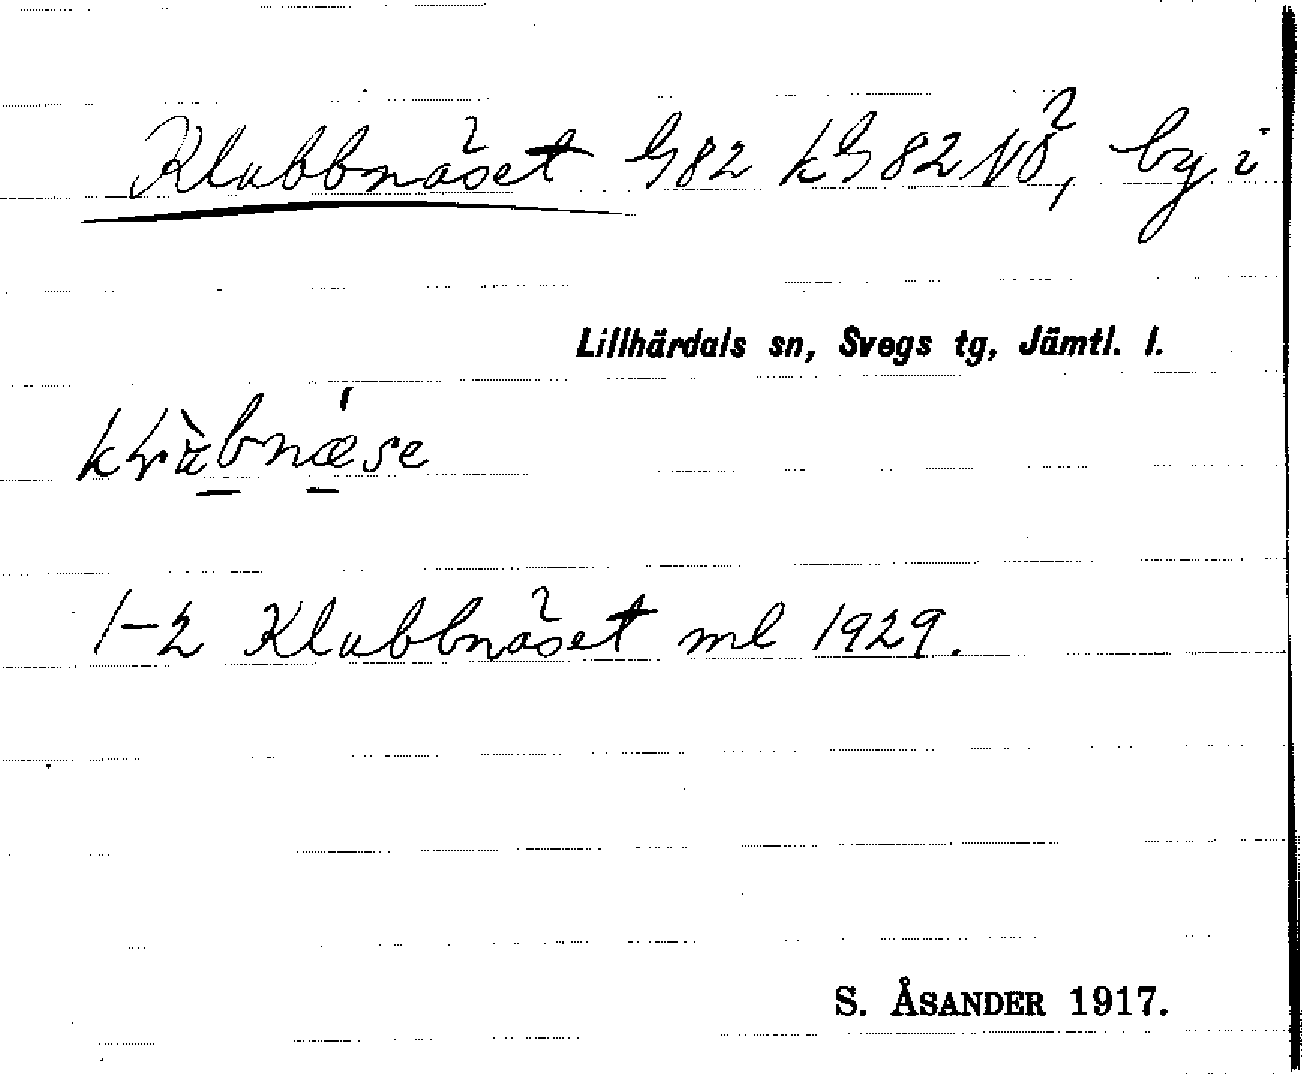 Klubbnäset G82 kG82NÖ, by i
Lillhärdals sn, Svegs tg, Jämtl. l.
1-2 Klubbnäset ml 1929.
S. ÅSANDER 1917.